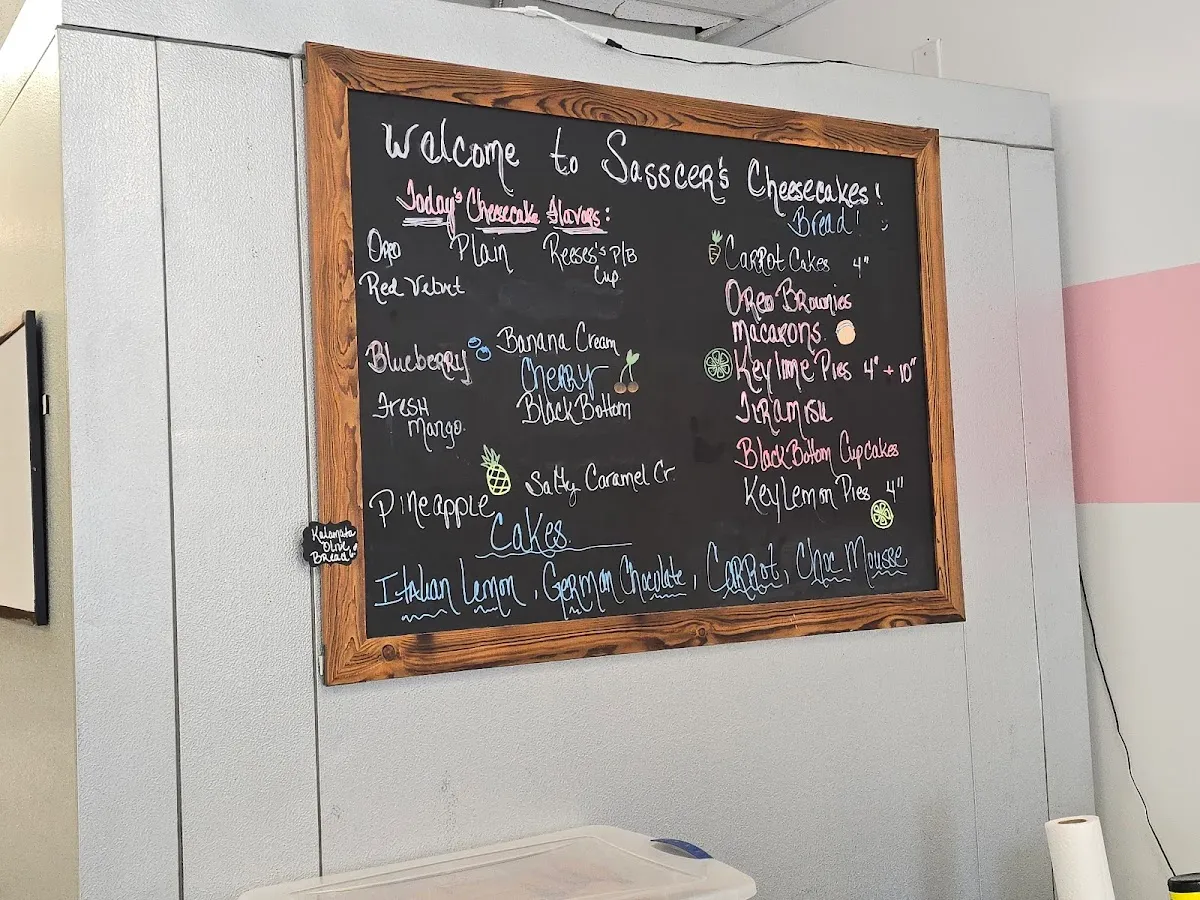 Welcome to Sasscer's Cheesecakes!
Bread!
Today's Cheesecake Flavors:
Oreo Plain Reese's P/B Cup
Red Velvet
Blueberry Banana Cream
Cherry
Fresh Mango Black Bottom
Pineapple Salty Caramel Cr.
Carrot Cakes 4"
Oreo Brownies
Macarons
Key lime Pies 4" + 10"
Tiramisu
Black Bottom Cupcakes
Key Lemon Pies 4"
Cakes
Italian Lemon, German Chocolate, Carrot, Choc Mousse
Kalamata
Olive
Bread